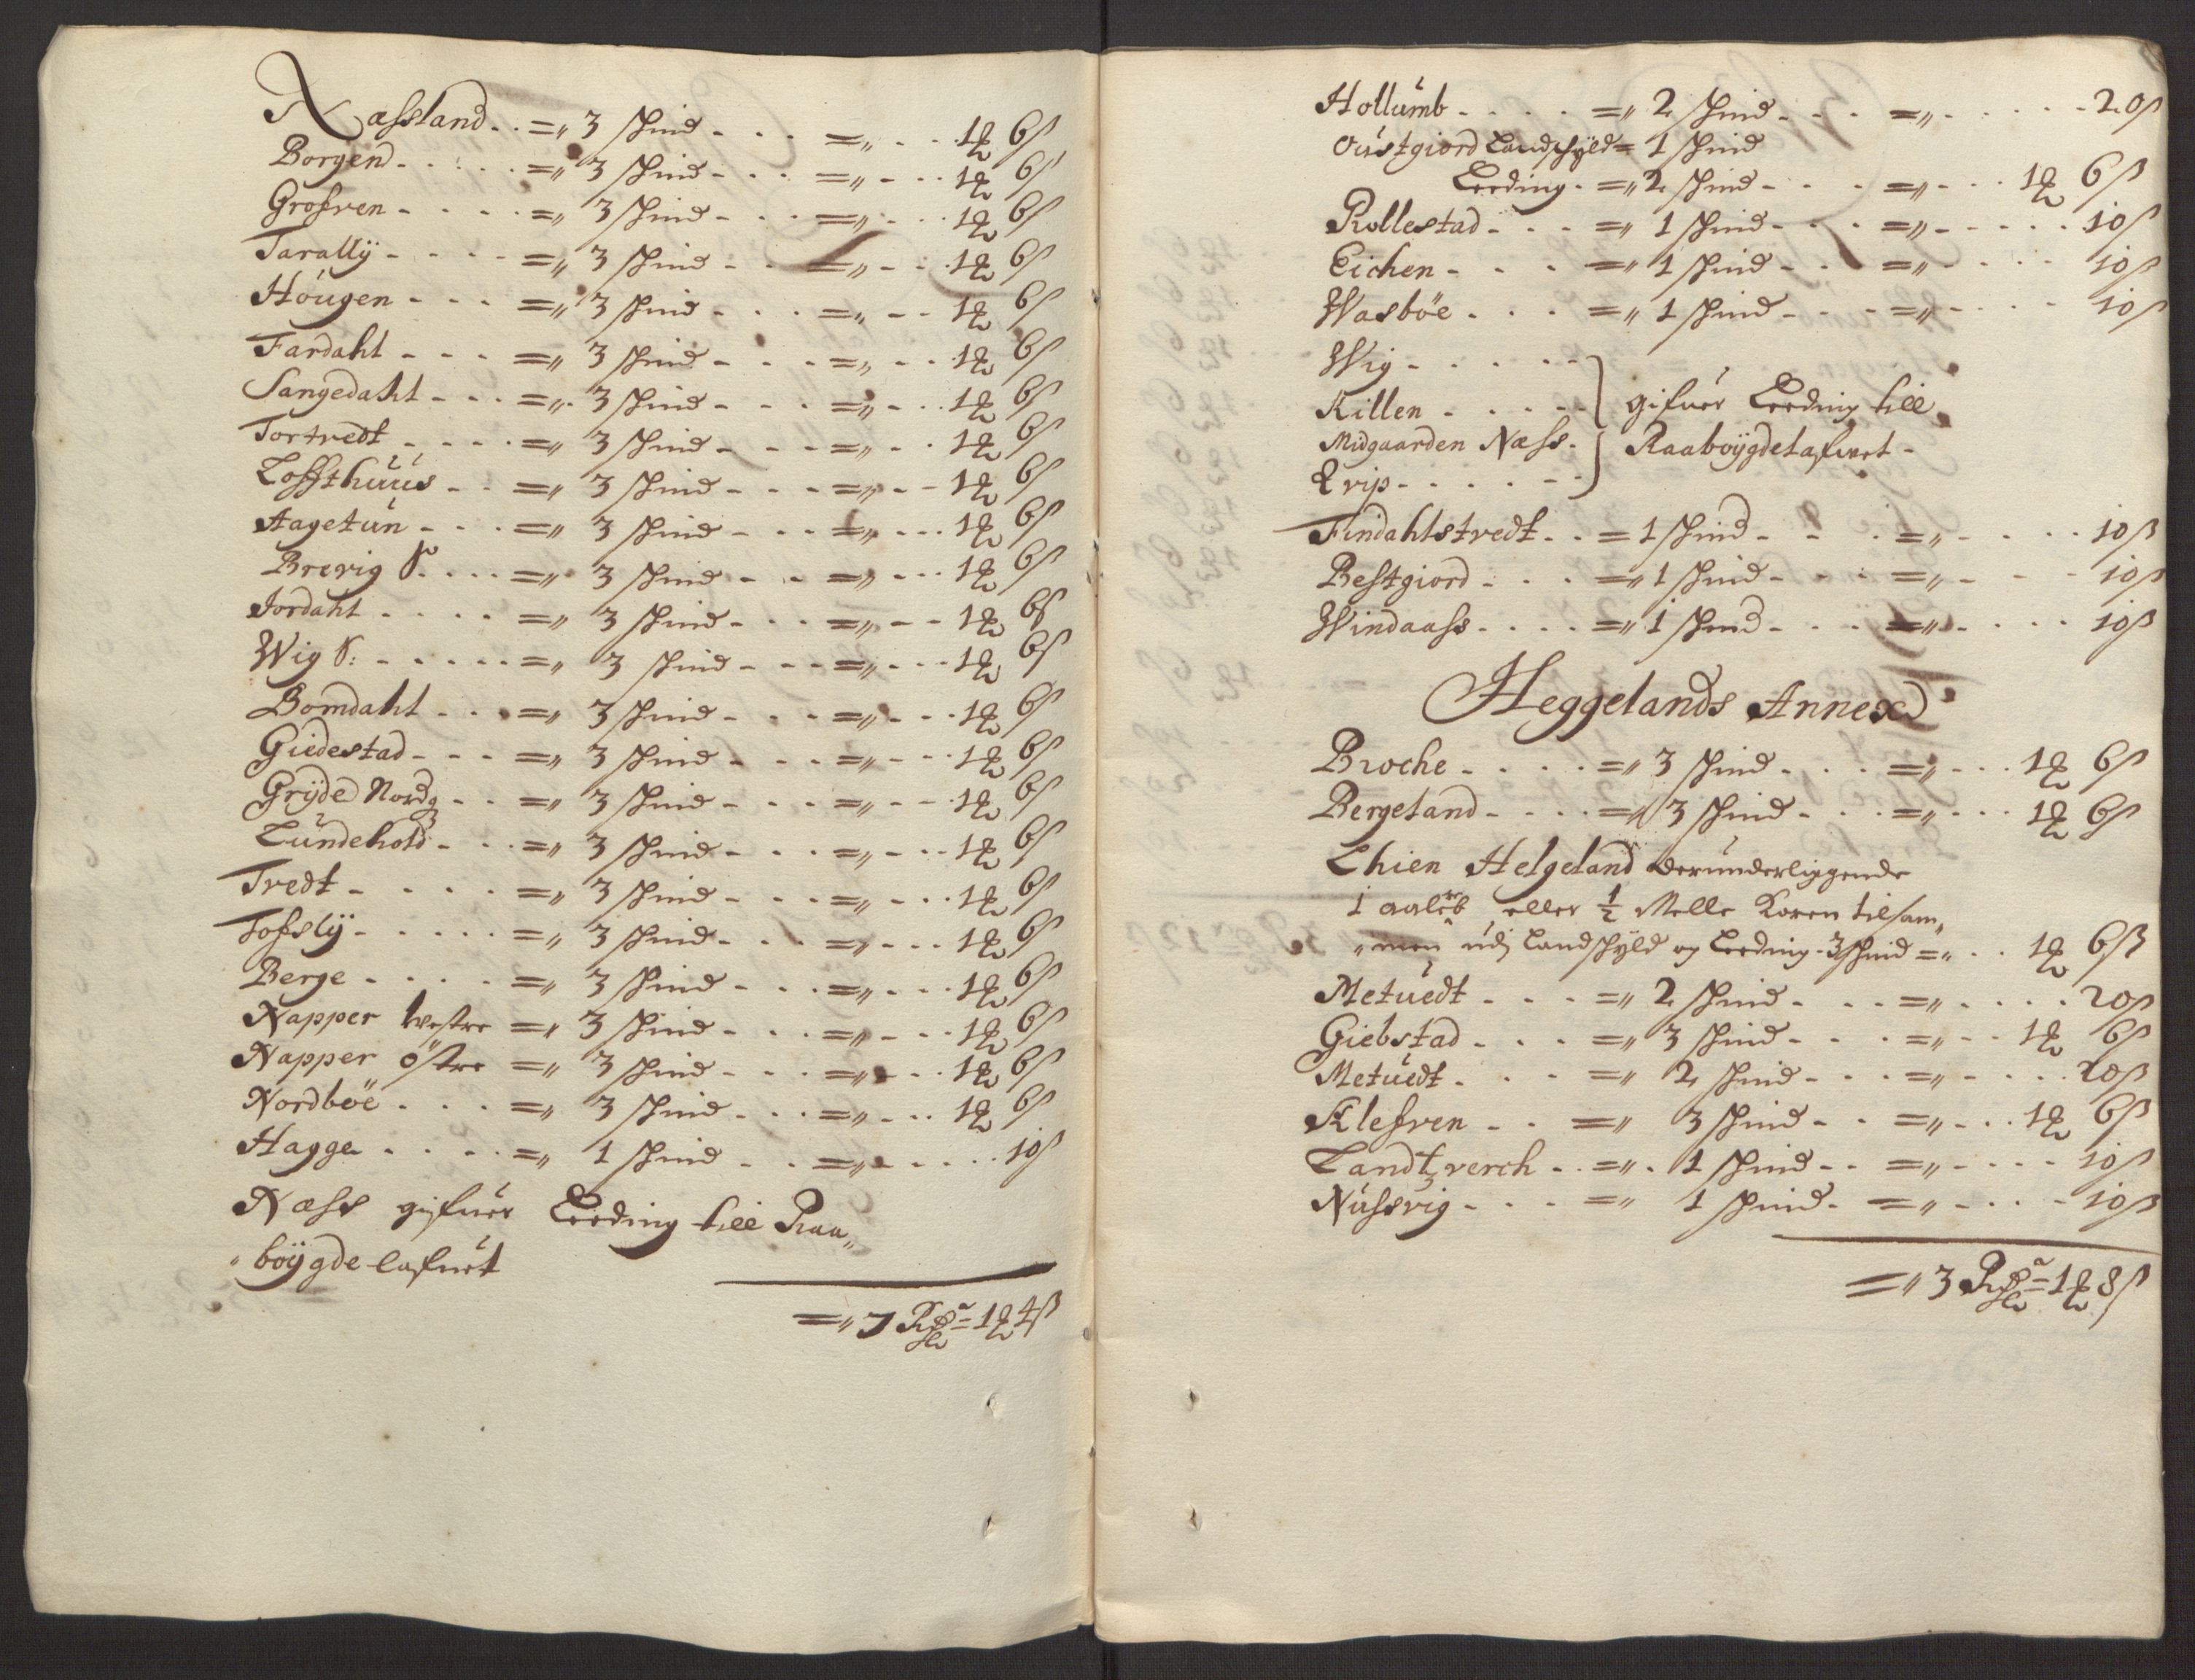 Næssland - - = 3 skind - - - = - - 1 ort 6 ß
Borgend - - - - = 3 skind - - - = - - 1 ort 6 ß
Grofren - - - - = 3 skind - - - = - - 1 ort 6 ß
Tarallÿ - - - - = 3 skind - - - = - - 1 ort 6 ß
Hougen - - - = 3 skind - - - = - - 1 ort 6 ß
Fardahl - - - = 3 skind - - - = - - 1 ort 6 ß
Sangedahl - - - = 3 skind - - - = - - 1 ort 6 ß
Tortvedt - - - - = 3 skind - - - = - - 1 ort 6 ß
Loffthuus - - = 3 skind - - - = - - 1 ort 6 ß
Aagetun - - - = 3 skind - - - = - - - 1 ort 6 ß
Brevig S. - - - = 3 skind - - - = - - - 1 ort 6 ß
Jordahl - - - - = 3 skind - - - = - - 1 ort 6 ß
Wig S: - - - - - = 3 skind - - - = - - - 1 ort 6 ß
Bomdahl - - - = 3 skind - - - = - - - 1 ort 6 ß
Giedestad - - - = 3 skind - - - = - - - 1 ort 6 ß
Grÿde Nordg - - = 3 skind - - - = - - - 1 ort 6 ß
Lundehold - - - = 3 skind - - - = - - - 1 ort 6 ß
Tredt - - - - - = 3 skind - - - = - - - 1 ort 6 ß
Tofslÿ - - - - - = 3 skind - - - = - - - 1 ort 6 ß
Berge - - - - = 3 skind - - - = - - - 1 ort 6 ß
Napper Westre = 3 skind - - - = - - - 1 ort 6 ß
Napper östre = 3 skind - - - = - - 1 ort 6 ß
Nordböe - - - = 3 skind - - - = - - - 1 ort 6 ß
Hagge - - - - = 1 skind - - - = - - - - 10 ß
Næss gifuer Leeding till Raa„
„boÿgde lafuet
= 7 Rdr = 1 ort 4 ß
Hollumb - - - - = 2 skind - - - = - - - - - 20 ß
Oustgiord Landskÿld = 1 skind
Leeding - = 2 skind - - - = - - - 1 ort 6 ß
Rollestad - - - = 1 skind - - - = - - - - - 10 ß
Eichen - - - = 1 skind - - - = - - - - 10 ß
Wasböe - - - = 1 skind - - - = - - - - 10 ß
Wig - - - - -
Killen - - - - - gifuer Leeding till
Midgaarden Næss - Raaboÿgdelafuet -
Erip - - - - - -
Findahlstredt - - = 1 skind - - - = - - - - 10 ß
Bestgiord - - - = 1 skind - - - = - - - - 10 ß
Windaass - - - - = 1 skind - - - = - - - - 10 ß
Heggelands Annex
Broche - - - - = 3 skind - - - = - - - 1 ort 6 ß
Bergeland - - - - = 3 skind - - - = - - - 1 ort 6 ß
Lhien Helgeland derunderliggende
1 eller ½ Melle Koren tilsam„
„men udj Landskÿld og Leeding - 3 skind = - - 1 ort 6 ß
Metuedt - - - = 2 skind - - - = - - - - 20 ß
Giebstad - - - = 3 skind - - - = - - 1 ort 6 ß
Metuedt - - - = 2 skind - - - = - - - - 20 ß
Klefven - - = 3 skind - - = - - - 1 ort 6 ß
Landtzverch - - = - 1 skind - - = - - - - 10 ß
Nussvig - - - = 1 skind - = - - - - 10 ß
= 3 Rdr = 1 ort 8 ß